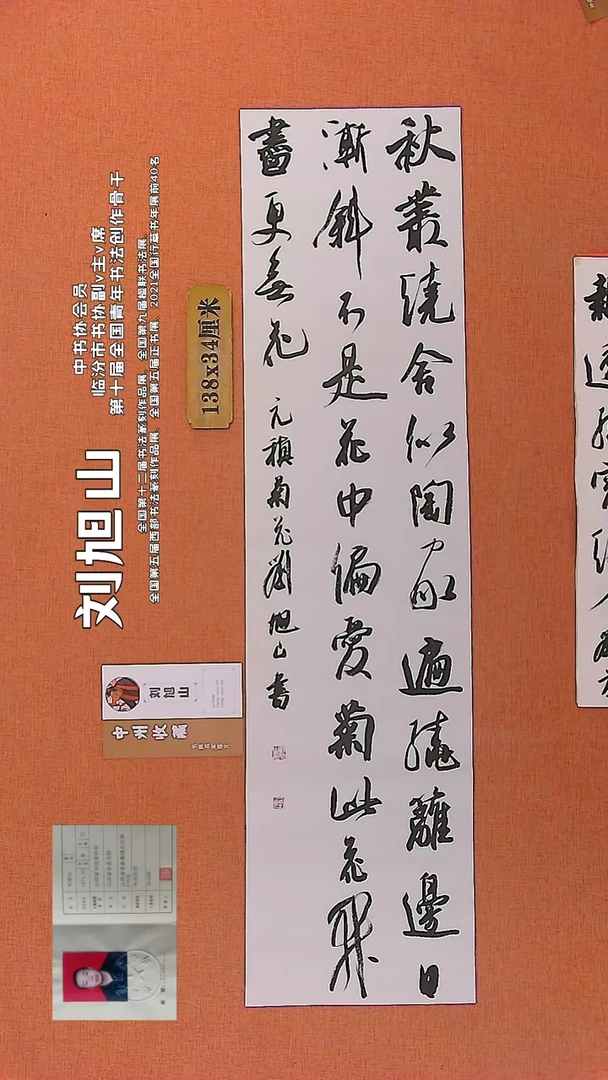 秋叢繞舍似陶家遍繞籬邊日
漸斜不是花中偏愛菊此花開
盡更無花 元稹菊花劉旭山書
138x34厘米
刘旭山
中书协会员
临汾市书协副v主v席
第十届全国青年书法创作骨干
全国第十二届书法篆刻作品展、全国第九届楹联书法展、
全国第五届西部书法篆刻作品展、全国第五届正书展、2021全国行草书年展前40名
刘旭山
中州收藏